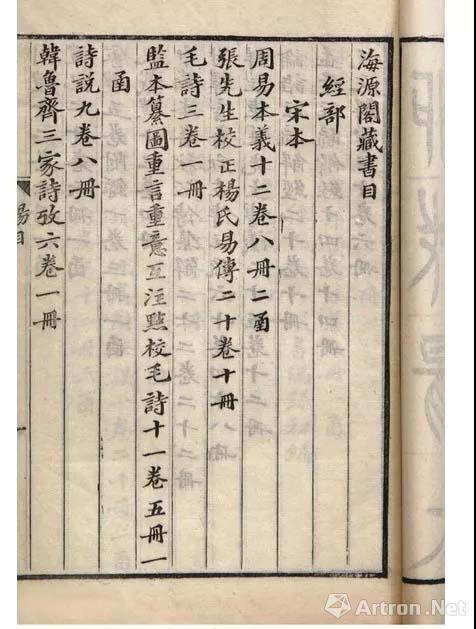 海源閣藏書目
經部
宋本
周易本義十二卷八冊二函
張先生校正楊氏易傳二十卷十冊
毛詩三卷一冊
監本纂圖重言重意互注點校毛詩十一卷五冊一
函
詩說九卷八冊
韓魯齊三家詩攷六卷一冊
楊目
一
Artron.Net